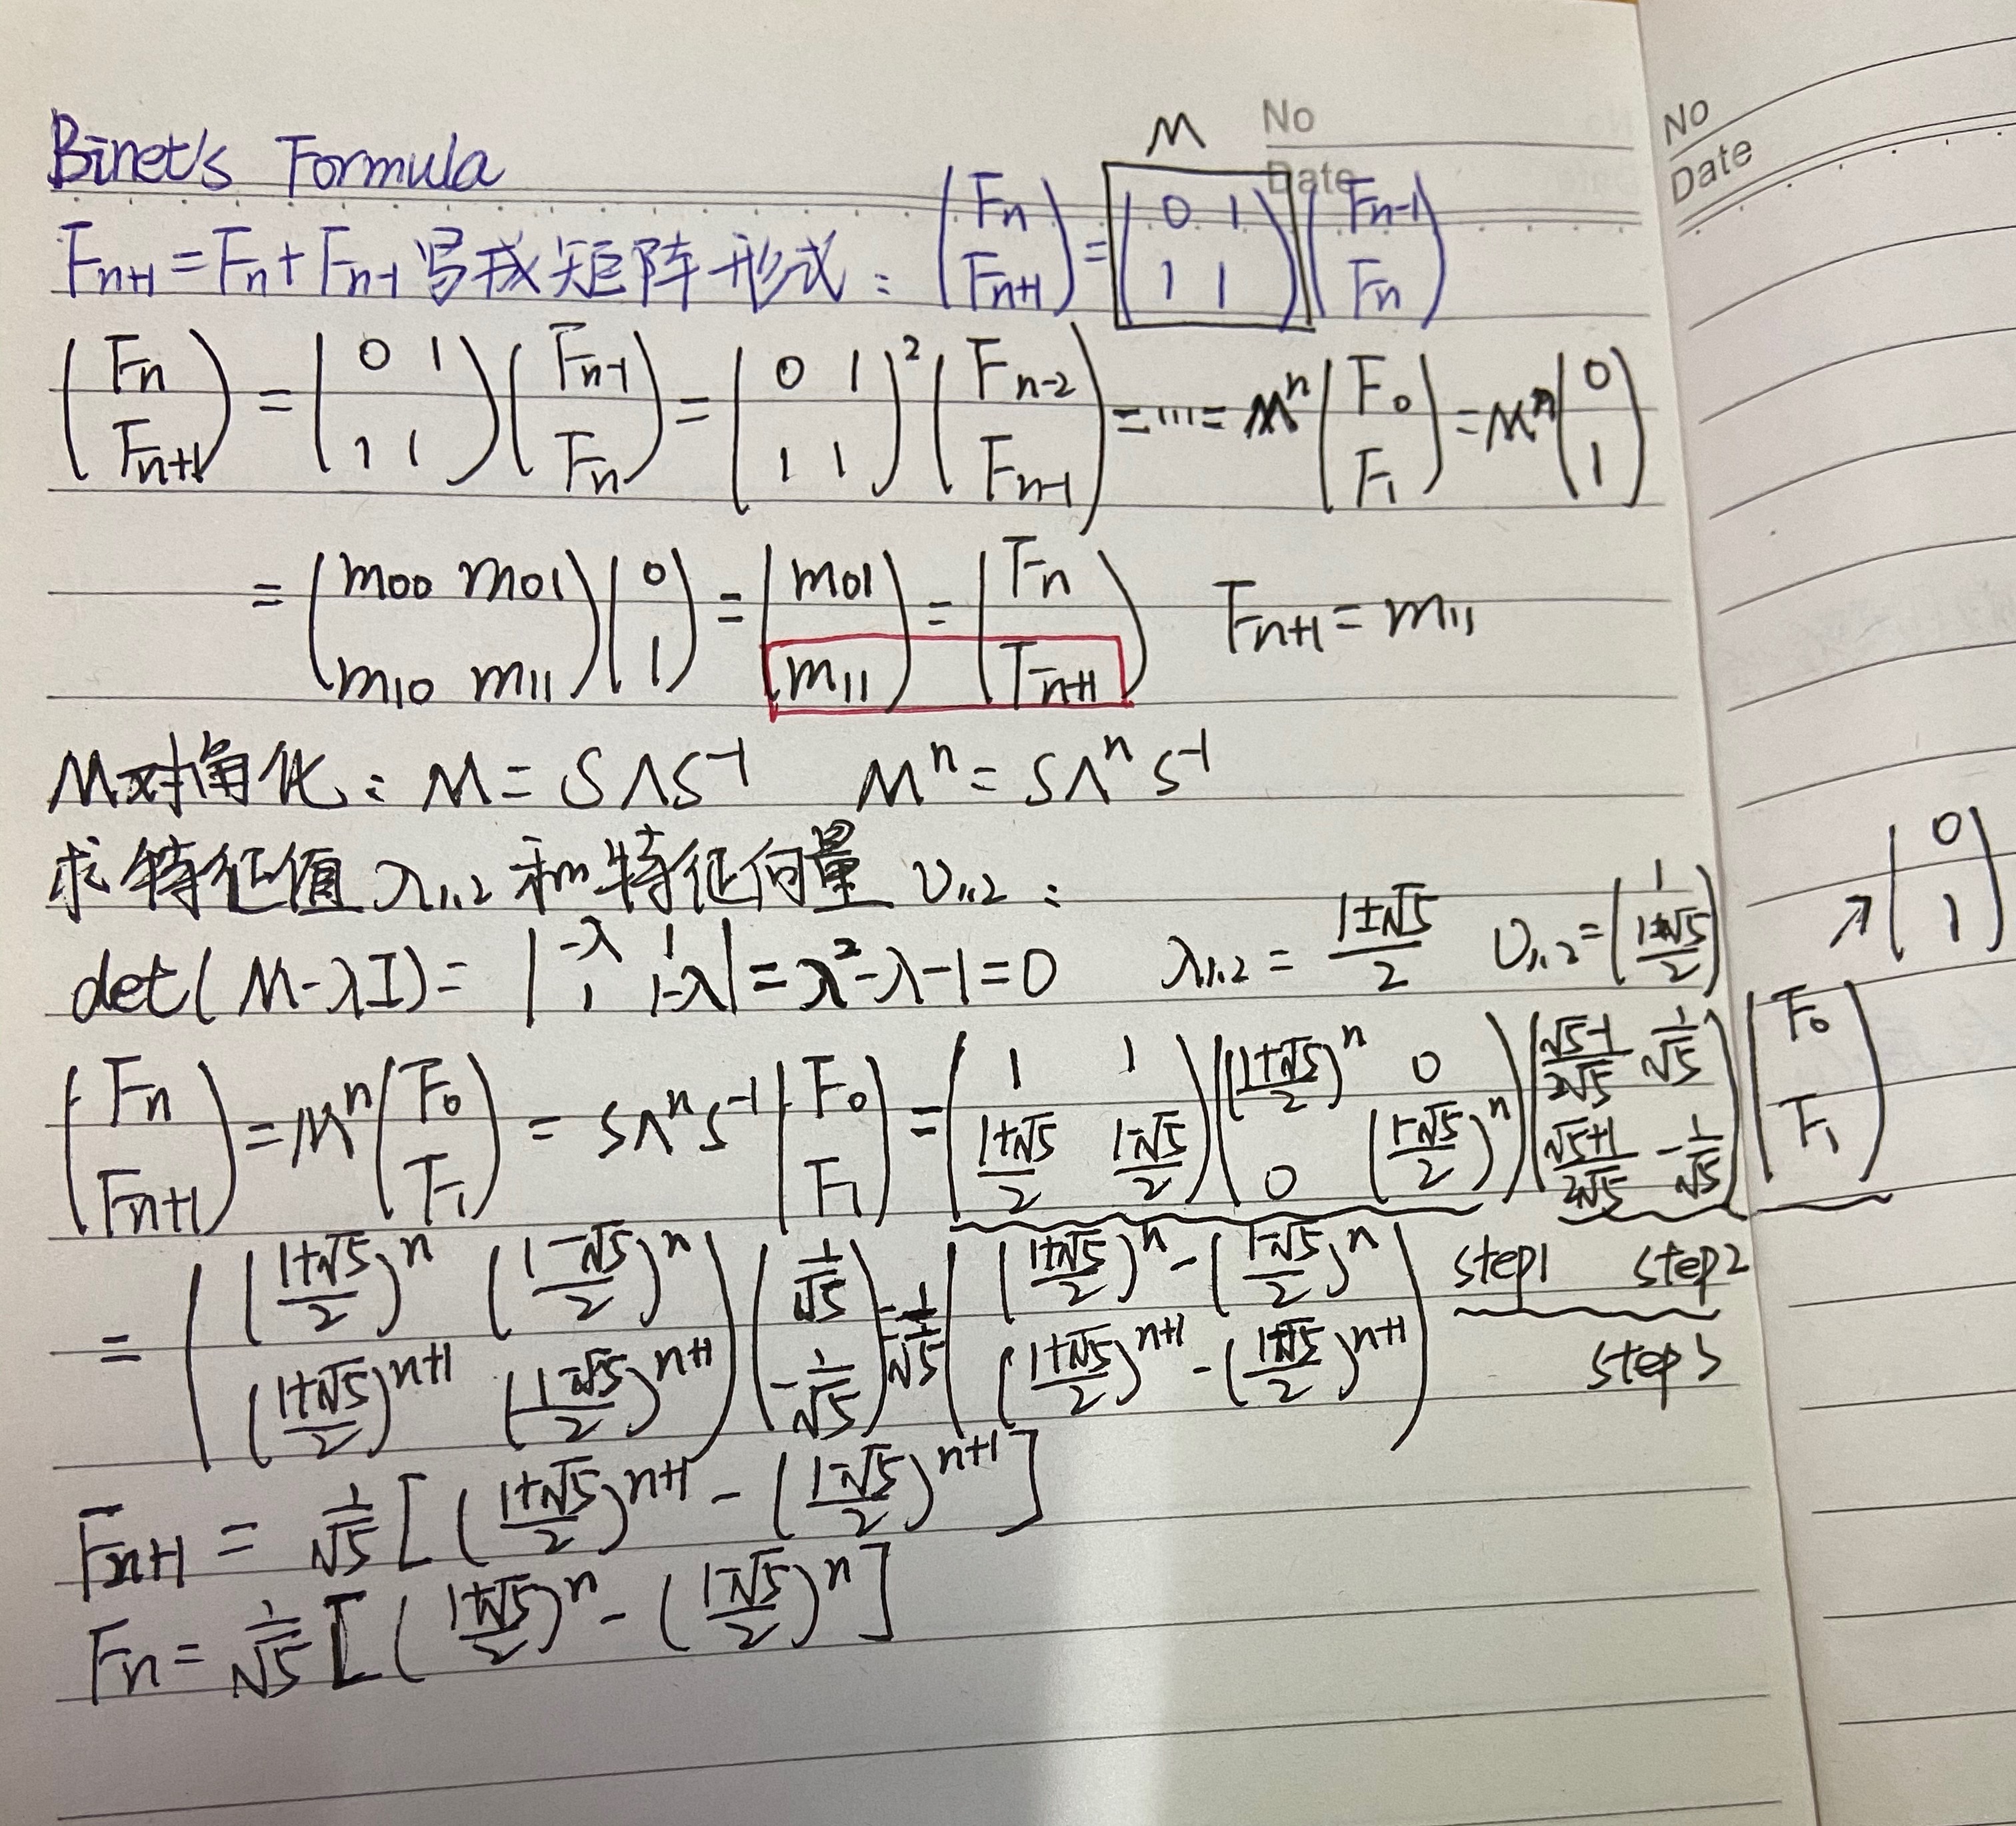 No
Date
No
Date
Binet's Formula
M
F_{n+1} = F_n + F_{n-1} 写成矩阵形式: (F_n; F_{n+1}) = (0 1; 1 1) (F_{n-1}; F_n)
(F_n; F_{n+1}) = (0 1; 1 1) (F_{n-1}; F_n) = (0 1; 1 1)^2 (F_{n-2}; F_{n-1}) = ... = M^n (F_0; F_1) = M^n (0; 1)
= (m00 m01; m10 m11) (0; 1) = (m01; m11) = (F_n; F_{n+1}) F_{n+1} = m11
M对角化: M = SΛS^{-1} M^n = SΛ^n S^{-1}
求特征值 λ_{1,2} 和特征向量 υ_{1,2}:
det(M-λI) = |-λ 1; 1 1-λ| = λ^2-λ-1=0 λ_{1,2} = (1±√5)/2 υ_{1,2} = (1; (1±√5)/2) ↗ (0; 1)
(F_n; F_{n+1}) = M^n (F_0; F_1) = SΛ^n S^{-1} (F_0; F_1) = (1 1; (1+√5)/2 (1-√5)/2) (((1+√5)/2)^n 0; 0 ((1-√5)/2)^n) ((√5-1)/(2√5) 1/√5; (√5+1)/(2√5) -1/√5) (F_0; F_1)
step1 step2
= (((1+√5)/2)^n ((1-√5)/2)^n; ((1+√5)/2)^{n+1} ((1-√5)/2)^{n+1}) (1/√5; -1/√5) = 1/√5 (((1+√5)/2)^n - ((1-√5)/2)^n; ((1+√5)/2)^{n+1} - ((1-√5)/2)^{n+1})
step3
F_{n+1} = 1/√5 [((1+√5)/2)^{n+1} - ((1-√5)/2)^{n+1}]
F_n = 1/√5 [((1+√5)/2)^n - ((1-√5)/2)^n]